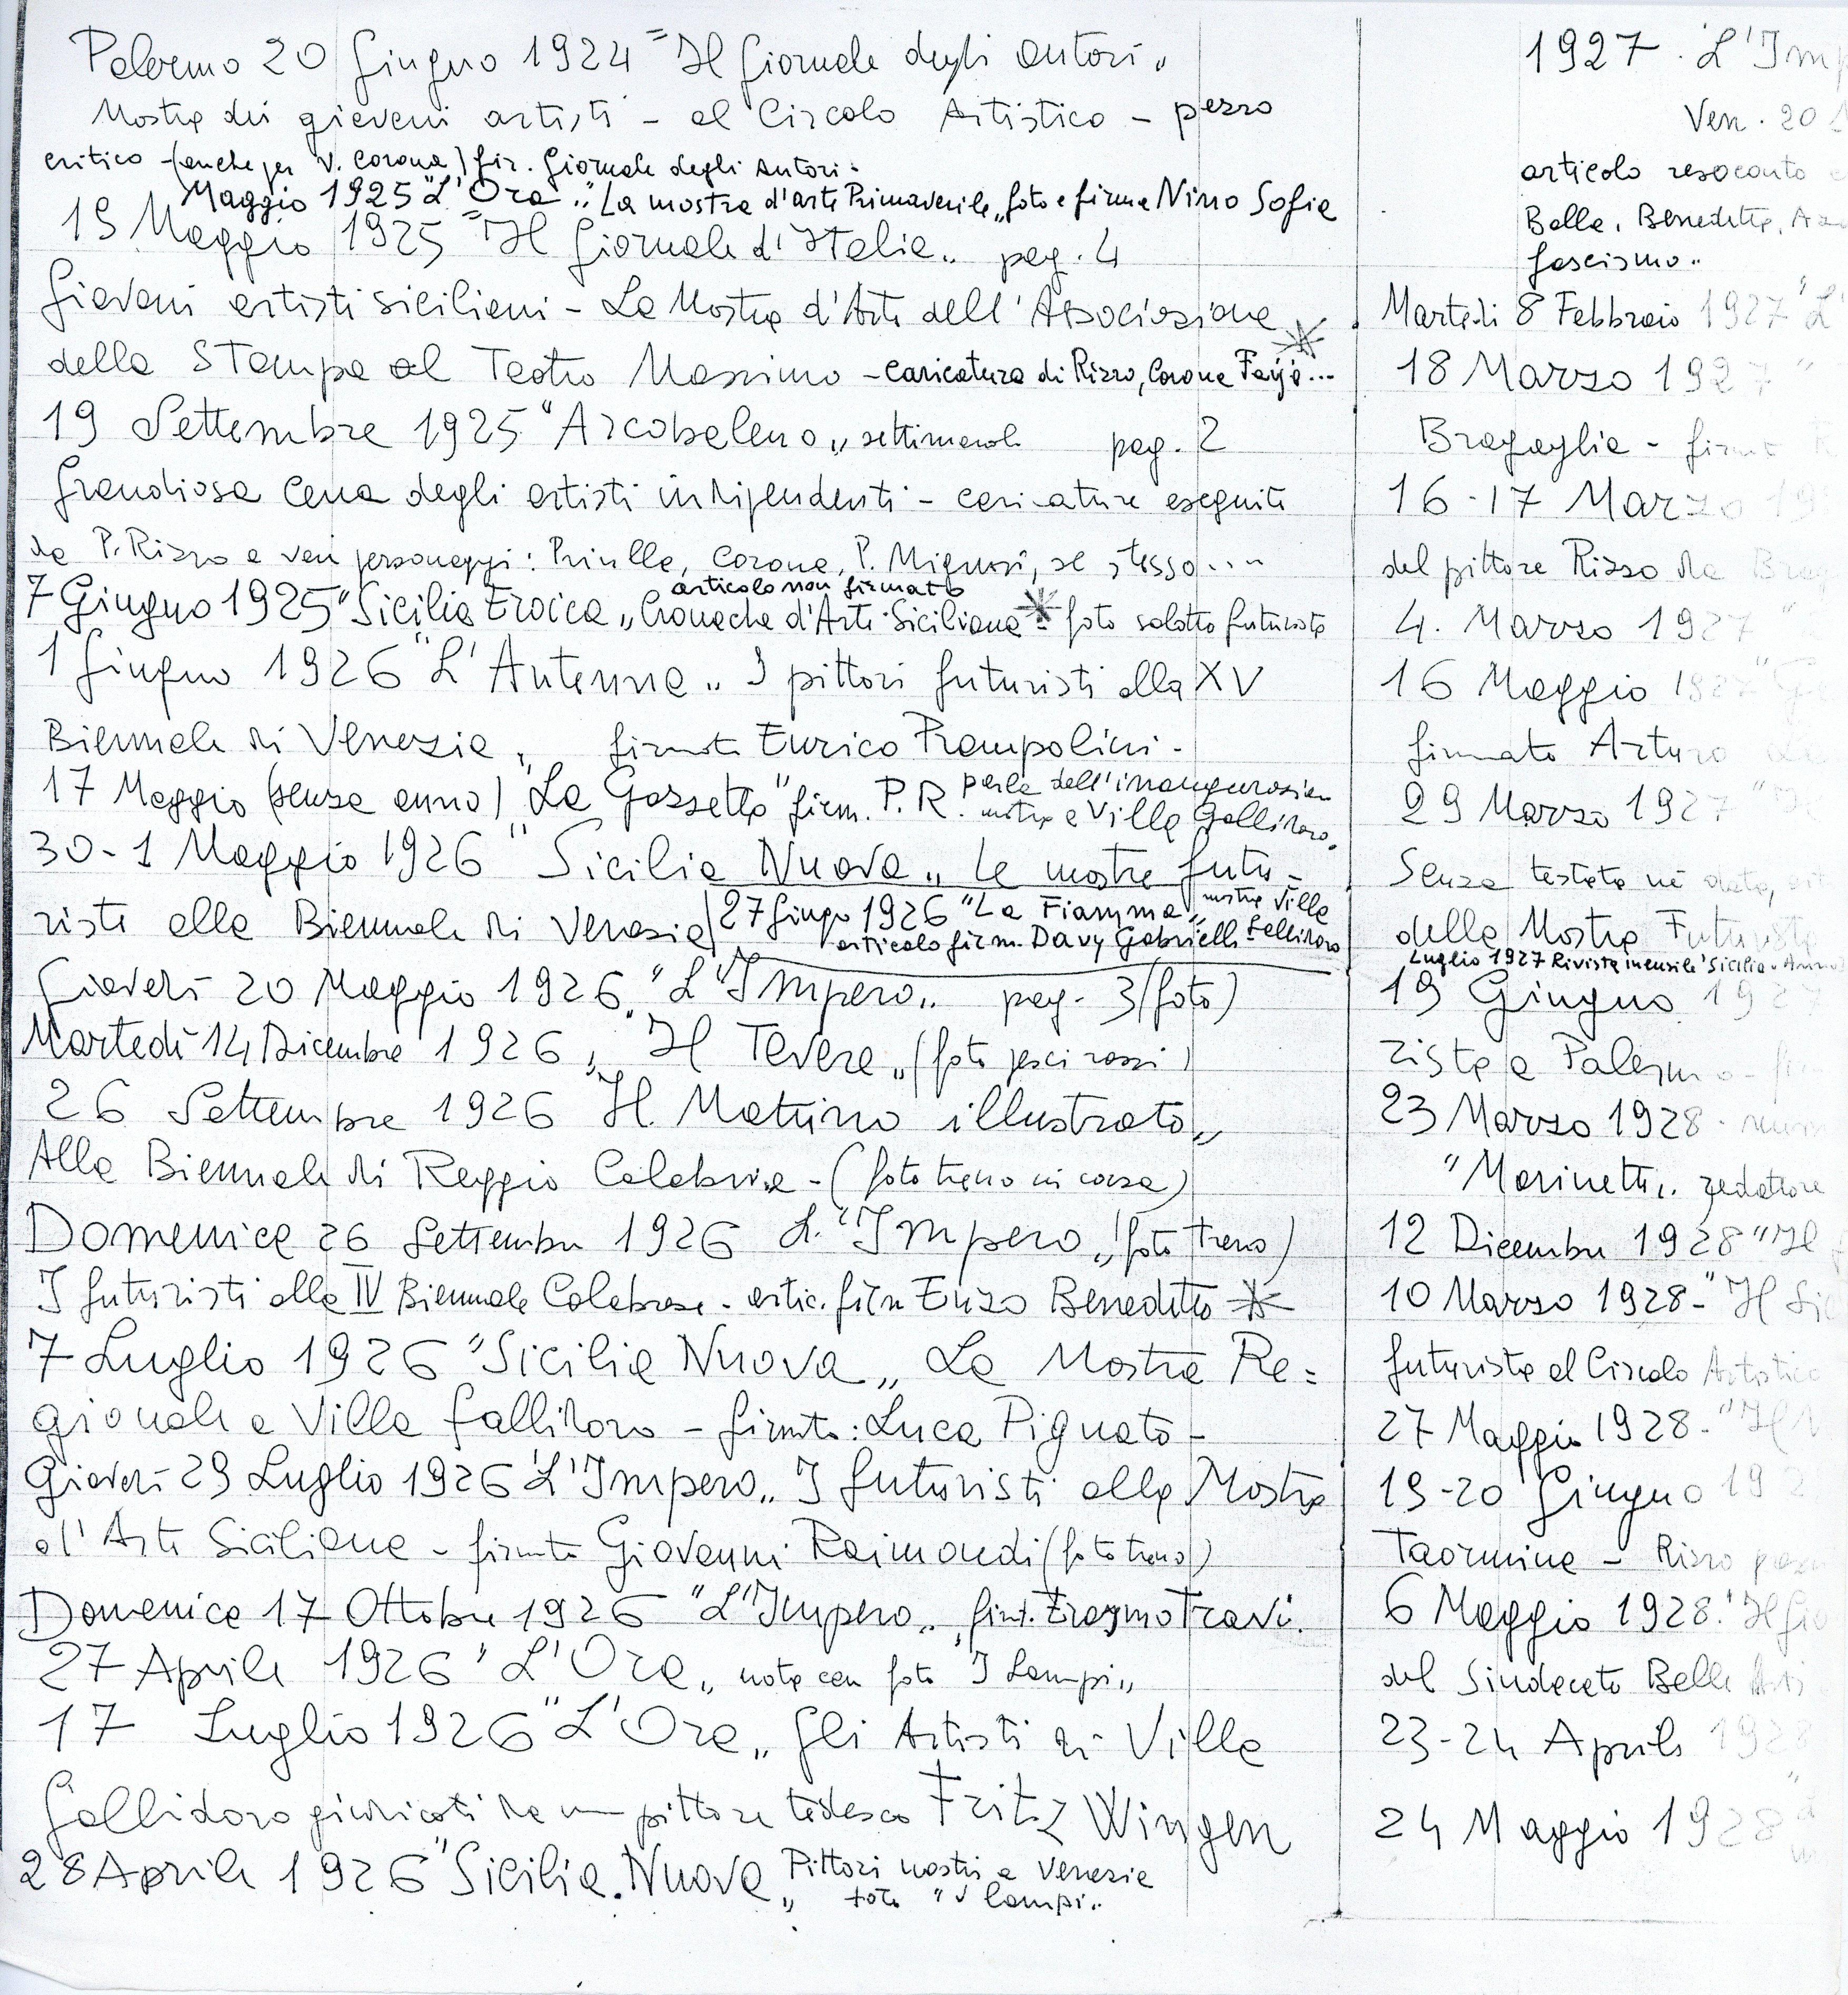 Palermo 20 Giugno 1924 "Il Giornale degli autori"
Mostra dei giovani artisti - al Circolo Artistico - pezzo
critico - (anche per V. Corona) fir. Giornale degli Autori.
Maggio 1925 "L'Ora" "La mostra d'arte Primaverile" foto e firma Nino Sofia
19 Maggio 1925 "Il Giornale d'Italia" pag. 4
Giovani artisti siciliani - La Mostra d'Arte dell'Associazione
della Stampa al Teatro Massimo - caricatura di Rizzo, Corona Fajja...
19 Settembre 1925 "Arcobaleno" settimanale pag. 2
Grandiosa Cena degli artisti indipendenti - caricature eseguite
da P. Rizzo a vari personaggi: Prinella, Corona, P. Mignosi, se stesso...
articolo non firmato
7 Giugno 1925 "Sicilia Eroica" "Cronache d'Arte Siciliana" - foto salotto futurista
1 Giugno 1926 "L'Antenna" I pittori futuristi alla XV
Biennale di Venezia, firmato Enrico Prampolini -
17 Maggio (senza anno) "La Gazzetta" firm. P. R. parla dell'inaugurazione
mostra a Villa Gallidoro.
30-1 Maggio 1926 "Sicilia Nuova" Le mostre futu-
riste alla Biennale di Venezia
27 Giugno 1926 "La Fiamma" mostra Villa
articolo firm. Davy Gabrielli - Gallidoro
Giovedì 20 Maggio 1926 "L'Impero" pag. 3 (foto)
Martedì 14 Dicembre 1926, "Il Tevere" (foto pesci rossi)
26 Settembre 1926 "Il Mattino illustrato"
Alla Biennale di Reggio Calabria - (foto treno in corsa)
Domenica 26 Settembre 1926 L'"Impero" (foto treno)
I futuristi alla IV Biennale Calabrese - artic. firm Enzo Benedetto
7 Luglio 1926 "Sicilia Nuova" La Mostra Re=
gionale a Villa Gallidoro - firmato: Luca Pignato -
Giovedì 29 Luglio 1926 "L'Impero" I futuristi alla Mostra
d'Arte Siciliana - firmato Giovanni Raimondi (foto treno)
Domenica 17 Ottobre 1926 "L'Impero" firm. Erasmo Travi.
27 Aprile 1926 "L'Ora" nota con foto "I Lampi"
17 Luglio 1926 "L'Ora" Gli Artisti di Villa
Gallidoro giudicati da un pittore tedesco Fritz Wingen
28 Aprile 1926 "Sicilia Nuova" Pittori nostri a Venezia
foto "I Lampi"
1927. L'Imp
Ven. 20
articolo resoconto
Balla, Benedetta, Az
fascismo"
Martedì 8 Febbraio 1927 "L'
18 Marzo 1927 "
Bragaglia - firmato
16-17 Marzo 19
del pittore Rizzo da Brag
4. Marzo 1927
16 Maggio 1927
firmato Arturo
29 Marzo 1927
Senza testata né data,
della Mostra Futurista
Luglio 1927 Rivista mensile "Sicilia" Anno
19 Giugno 1927
rista a Palermo -
23 Marzo 1928 -
"Marinetti" redattore
12 Dicembre 1928 "Il
10 Marzo 1928 - "Il Si
futurista al Circolo Artistico
27 Maggio 1928 - "Il
19-20 Giugno 192
Taormina - Rizzo
6 Maggio 1928. "Il Gio
del Sindacato Belle Arti
23-24 Aprile 1928
24 Maggio 1928